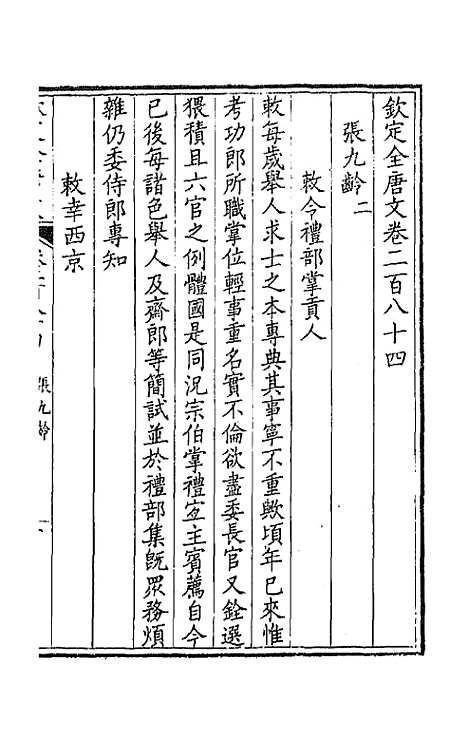 欽定全唐文卷二百八十四
張九齡二
敕令禮部掌貢人
敕每歲舉人求士之本專典其事寧不重歟頃年已來惟
考功郎所職掌位輕事重名實不倫欲盡委長官又銓選
猥積且六官之例體國是同況宗伯掌禮宜主賓薦自今
已後每諸色舉人及齋郎等簡試並於禮部集旣眾務煩
雜仍委侍郎專知
敕幸西京
張九齡